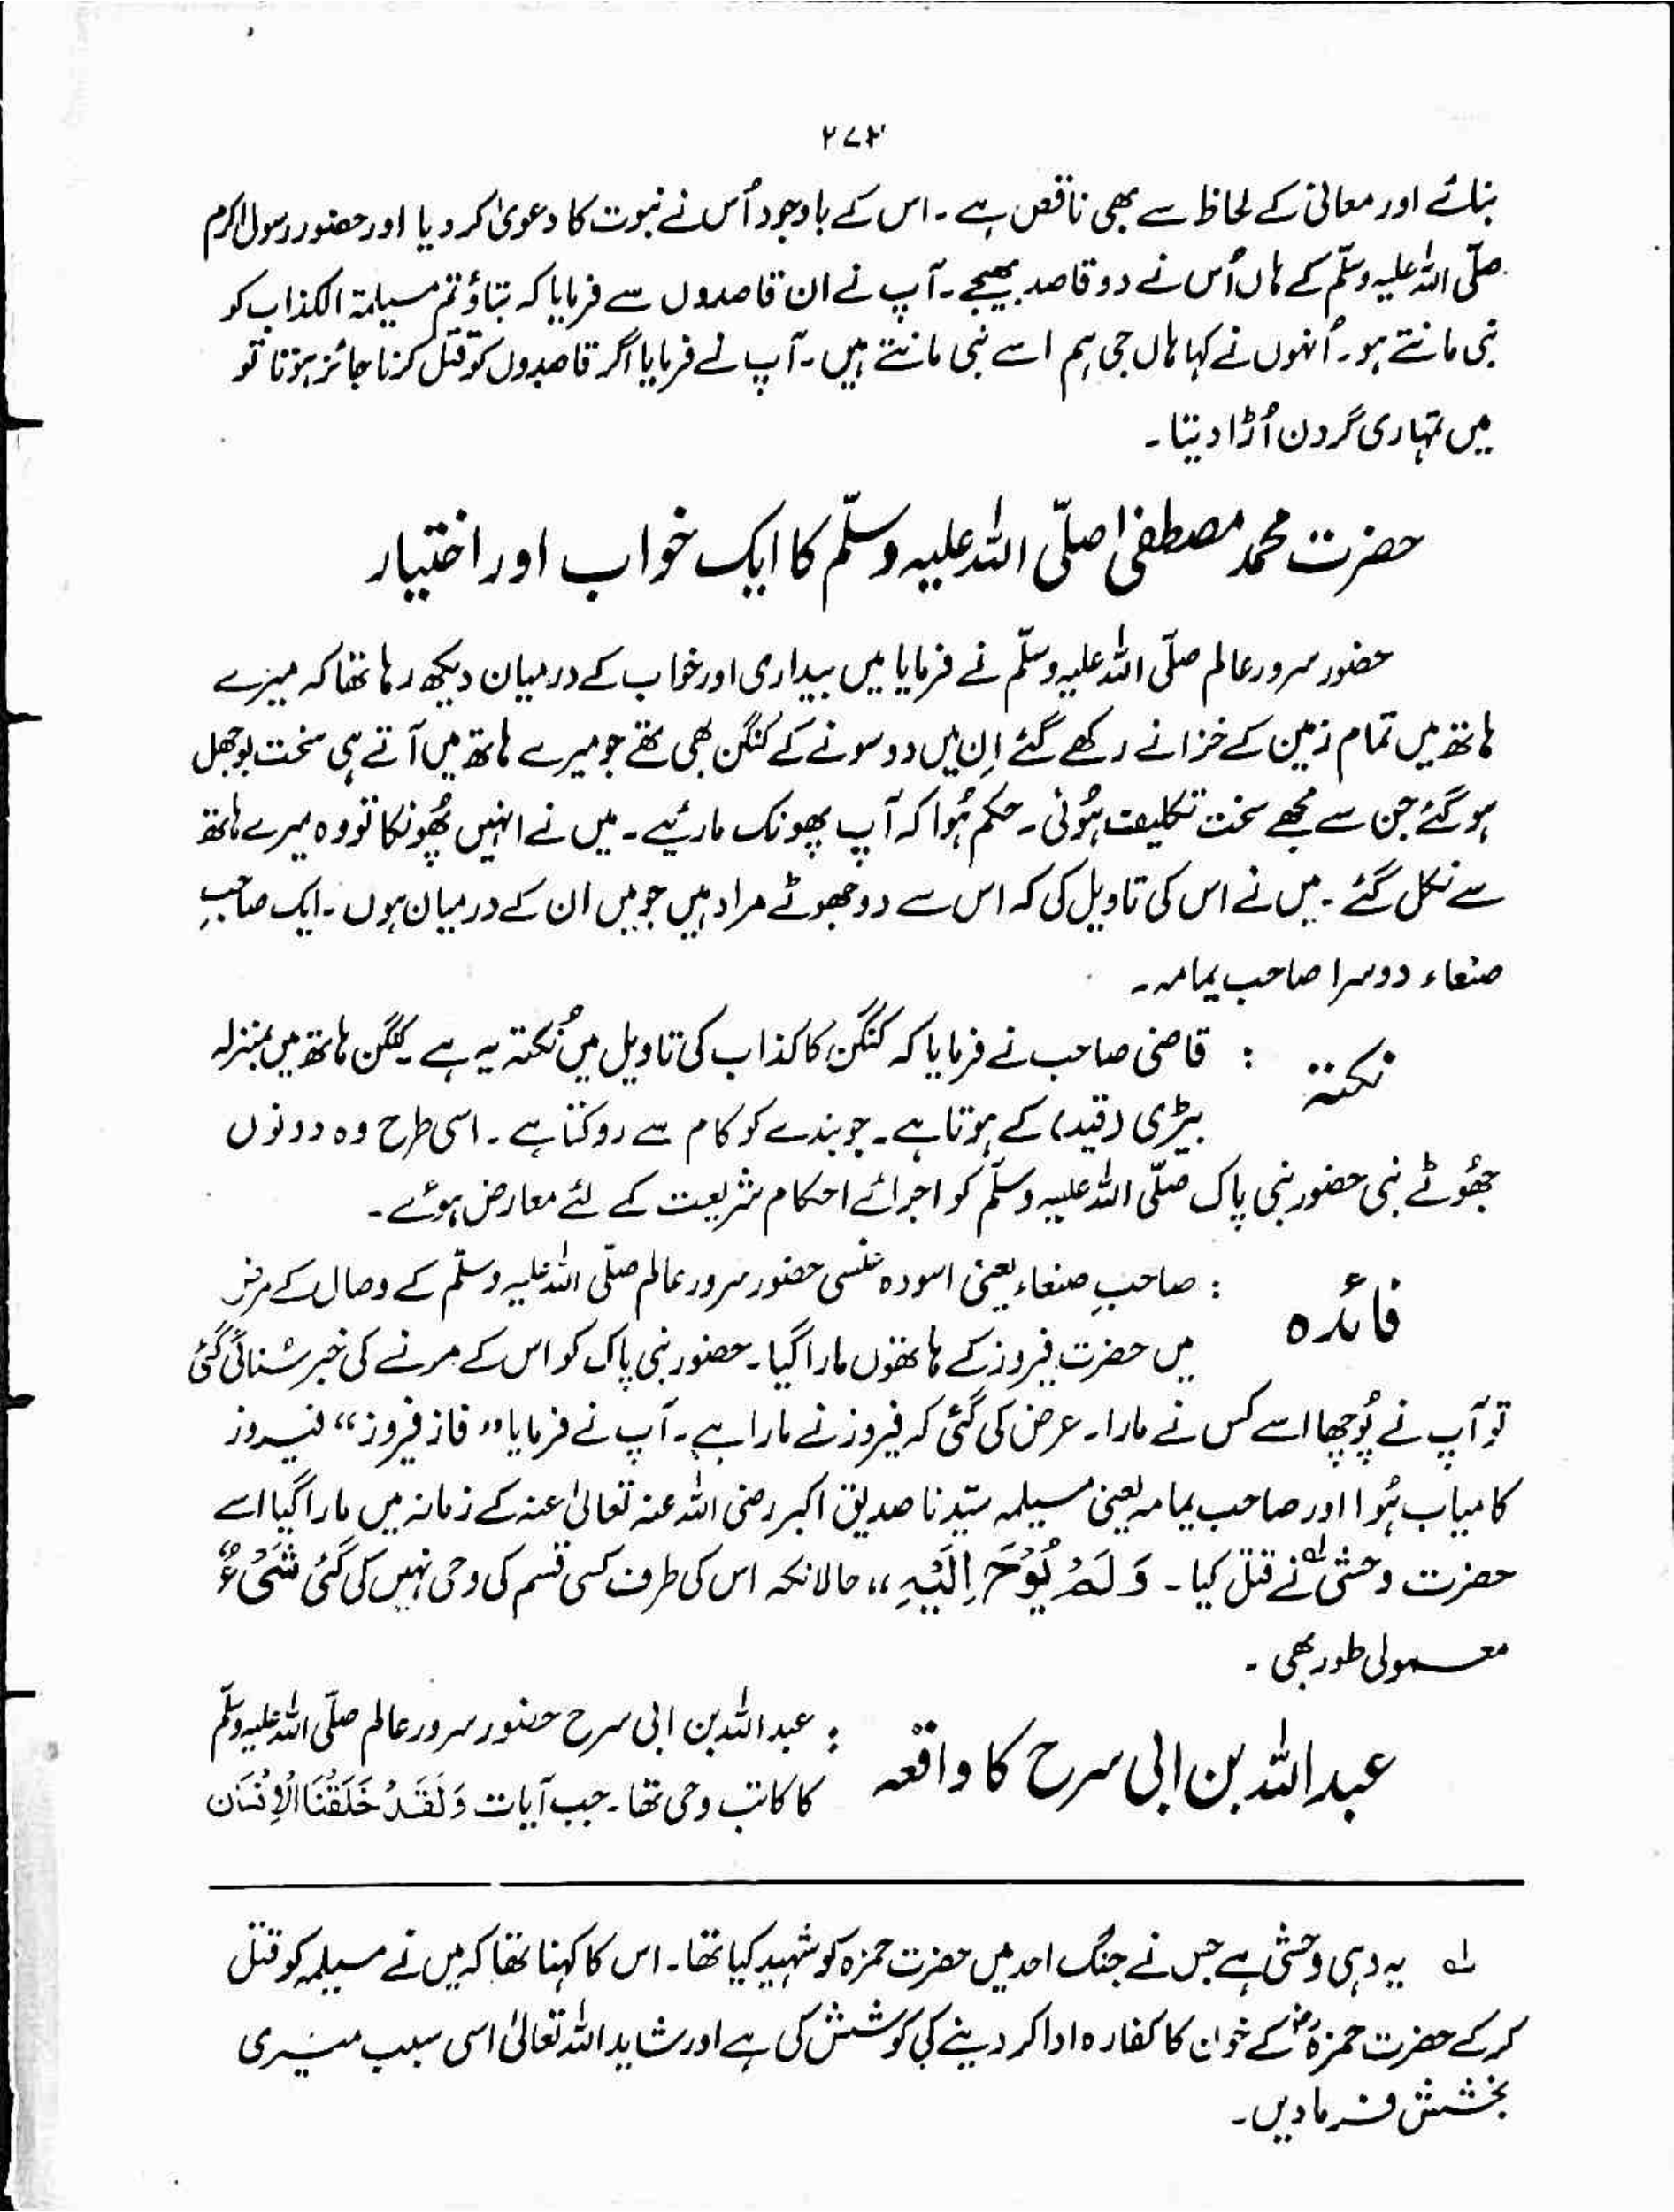 ۲۷۳
بنائے اور معانی کے لحاظ سے بھی ناقص ہے۔ اس کے باوجود اُس نے نبوت کا دعویٰ کر دیا اور حضور رسول اکرم
صلّی اللہ علیہ وسلّم کے ہاں اُس نے دو قاصد بھیجے۔ آپ نے ان قاصدوں سے فرمایا کہ بتاؤ تم مسیلمۃ الکذاب کو
نبی مانتے ہو۔ اُنہوں نے کہا ہاں جی ہم اسے نبی مانتے ہیں۔ آپ نے فرمایا اگر قاصدوں کو قتل کرنا جائز ہوتا تو
میں تمہاری گردن اُڑا دیتا۔
حضرت محمد مصطفیٰ صلّی اللہ علیہ وسلّم کا ایک خواب اور اختیار
حضور سرور عالم صلّی اللہ علیہ وسلّم نے فرمایا میں بیداری اور خواب کے درمیان دیکھ رہا تھا کہ میرے
ہاتھ میں تمام زمین کے خزانے رکھے گئے اِن میں دو سونے کے کنگن بھی تھے جو میرے ہاتھ میں آتے ہی سخت بوجھل
ہو گئے جن سے مجھے سخت تکلیف ہُوئی۔ حکم ہُوا کہ آپ پھونک مارئیے۔ میں نے انہیں پُھونکا تو وہ میرے ہاتھ
سے نکل گئے۔ میں نے اس کی تاویل کی کہ اس سے دو جھوٹے مراد ہیں جو میں ان کے درمیان ہوں۔ ایک صاحبِ
صنعاء دوسرا صاحب یمامہ۔
نکتہ : قاضی صاحب نے فرمایا کہ کنگن کا کذاب کی تاویل میں نُکتہ یہ ہے۔ کنگن ہاتھ میں بمنزلہ
بیڑی (قید) کے ہوتا ہے۔ جو بندے کو کام سے روکتا ہے۔ اسی طرح وہ دونوں
جھُوٹے نبی حضور نبی پاک صلّی اللہ علیہ وسلّم کو اجرائے احکام شریعت کے لئے معارض ہوئے۔
فائدہ : صاحبِ صنعاء یعنی اسودہ عنسی حضور سرور عالم صلّی اللہ علیہ وسلّم کے وصال کے مرض
میں حضرت فیروز کے ہاتھوں مارا گیا۔ حضور نبی پاک کو اس کے مرنے کی خبر سُنائی گئی
تو آپ نے پُوچھا اسے کس نے مارا۔ عرض کی گئی کہ فیروز نے مارا ہے۔ آپ نے فرمایا ”فاز فیروز“ فیروز
کامیاب ہُوا اور صاحب یمامہ یعنی مسیلمہ سیّدنا صدیق اکبر رضی اللہ عنہ تعالیٰ عنہ کے زمانہ میں مارا گیا اسے
حضرت وحشی لہ نے قتل کیا۔ وَلَمْ یُوْحَ اِلَیْہِ ،، حالانکہ اس کی طرف کسی قسم کی وحی نہیں کی گئی شَیْءٌ
معمولی طور بھی۔
عبداللہ بن ابی سرح کا واقعہ : عبداللہ بن ابی سرح حضور سرور عالم صلّی اللہ علیہ وسلّم
کا کاتب وحی تھا۔ جب آیات وَلَقَدْ خَلَقْنَا الْاِنْسَان
لہ یہ وہی وحشی ہے جس نے جنگ احد میں حضرت حمزہ کو شہید کیا تھا۔ اس کا کہنا تھا کہ میں نے مسیلمہ کو قتل
کر کے حضرت حمزہؓ کے خون کا کفارہ ادا کر دینے کی کوشش کی ہے اور شاید اللہ تعالیٰ اسی سبب میری
بخشش فرما دیں۔